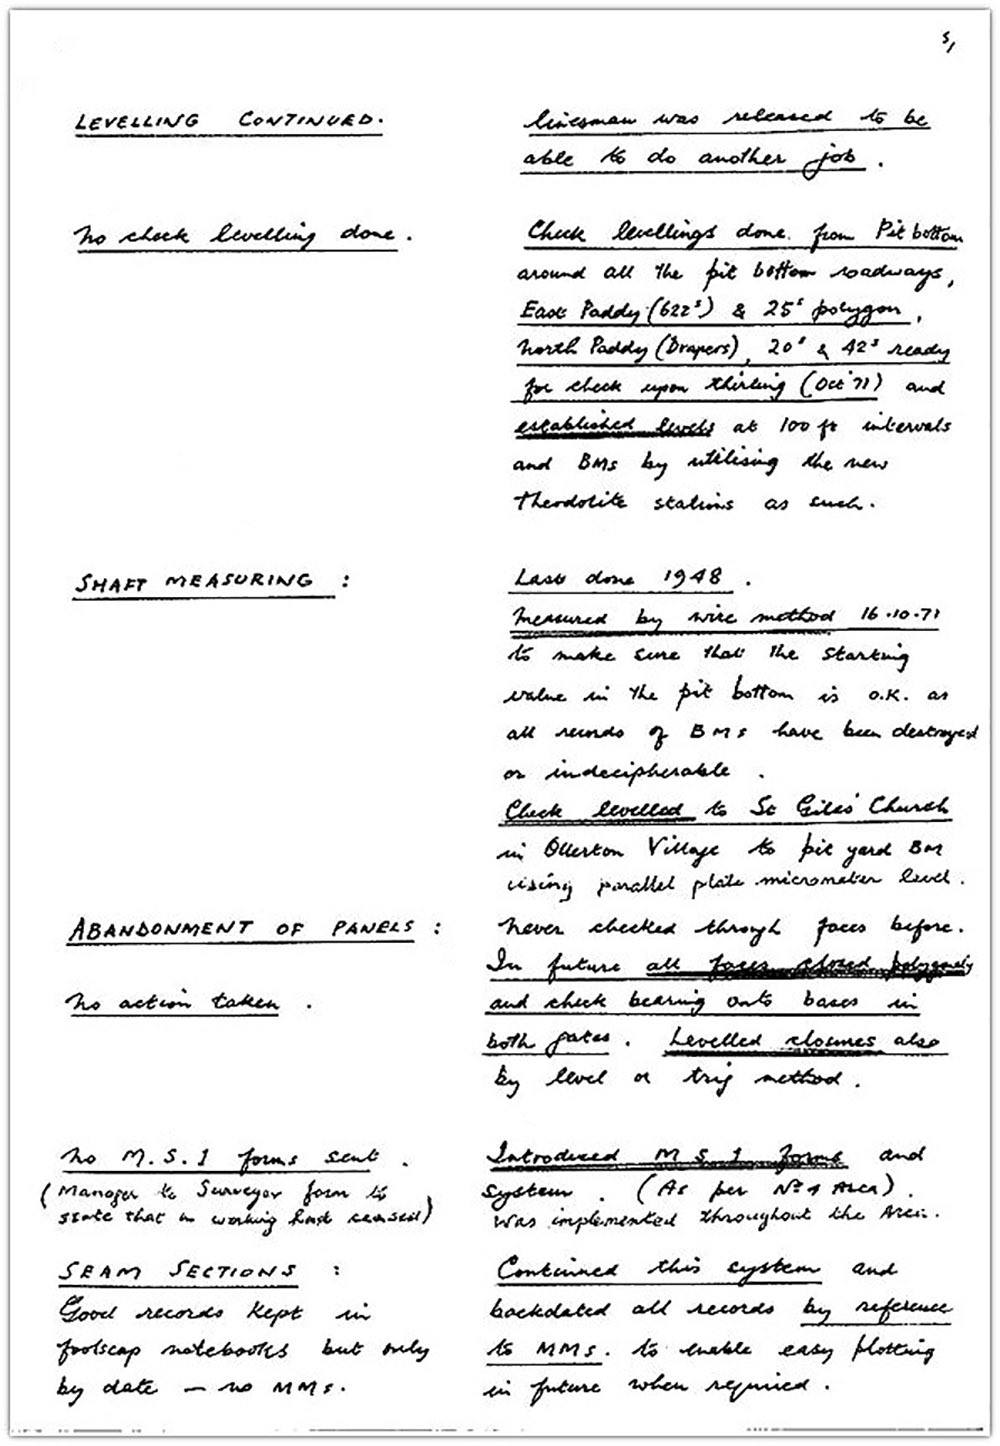 5/
LEVELLING CONTINUED.
linesman was released to be
able to do another job.
No check levelling done.
Check levellings done from Pit bottom
around all the pit bottom roadways,
East Paddy (622s) & 25s polygon,
North Paddy (Drapers), 20s & 42s ready
for check upon thirling (Oct '71) and
established levels at 100 ft intervals
and BMs by utilising the new
Theodolite stations as such.
SHAFT MEASURING :
Last done 1948.
Measured by wire method 16.10.71
to make sure that the starting
value in the pit bottom is O.K. as
all records of BMs have been destroyed
or indecipherable.
Check levelled to St Giles' Church
in Ollerton Village to pit yard BM
using parallel plate micrometer level.
ABANDONMENT OF PANELS :
Never checked through faces before.
In future all faces closed polygonely
No action taken.
and check bearing onto bases in
both gates. Levelled closures also
by level or trig method.
No M.S.1 forms sent.
(Manager to Surveyor form to
state that a working had ceased)
Introduced M S 1 forms and
system. (As per No 1 Area).
Was implemented throughout the Area.
SEAM SECTIONS :
Good records kept in
foolscap notebooks but only
by date — no MMs.
Continued this system and
backdated all records by reference
to MMs. to enable easy plotting
in future when required.